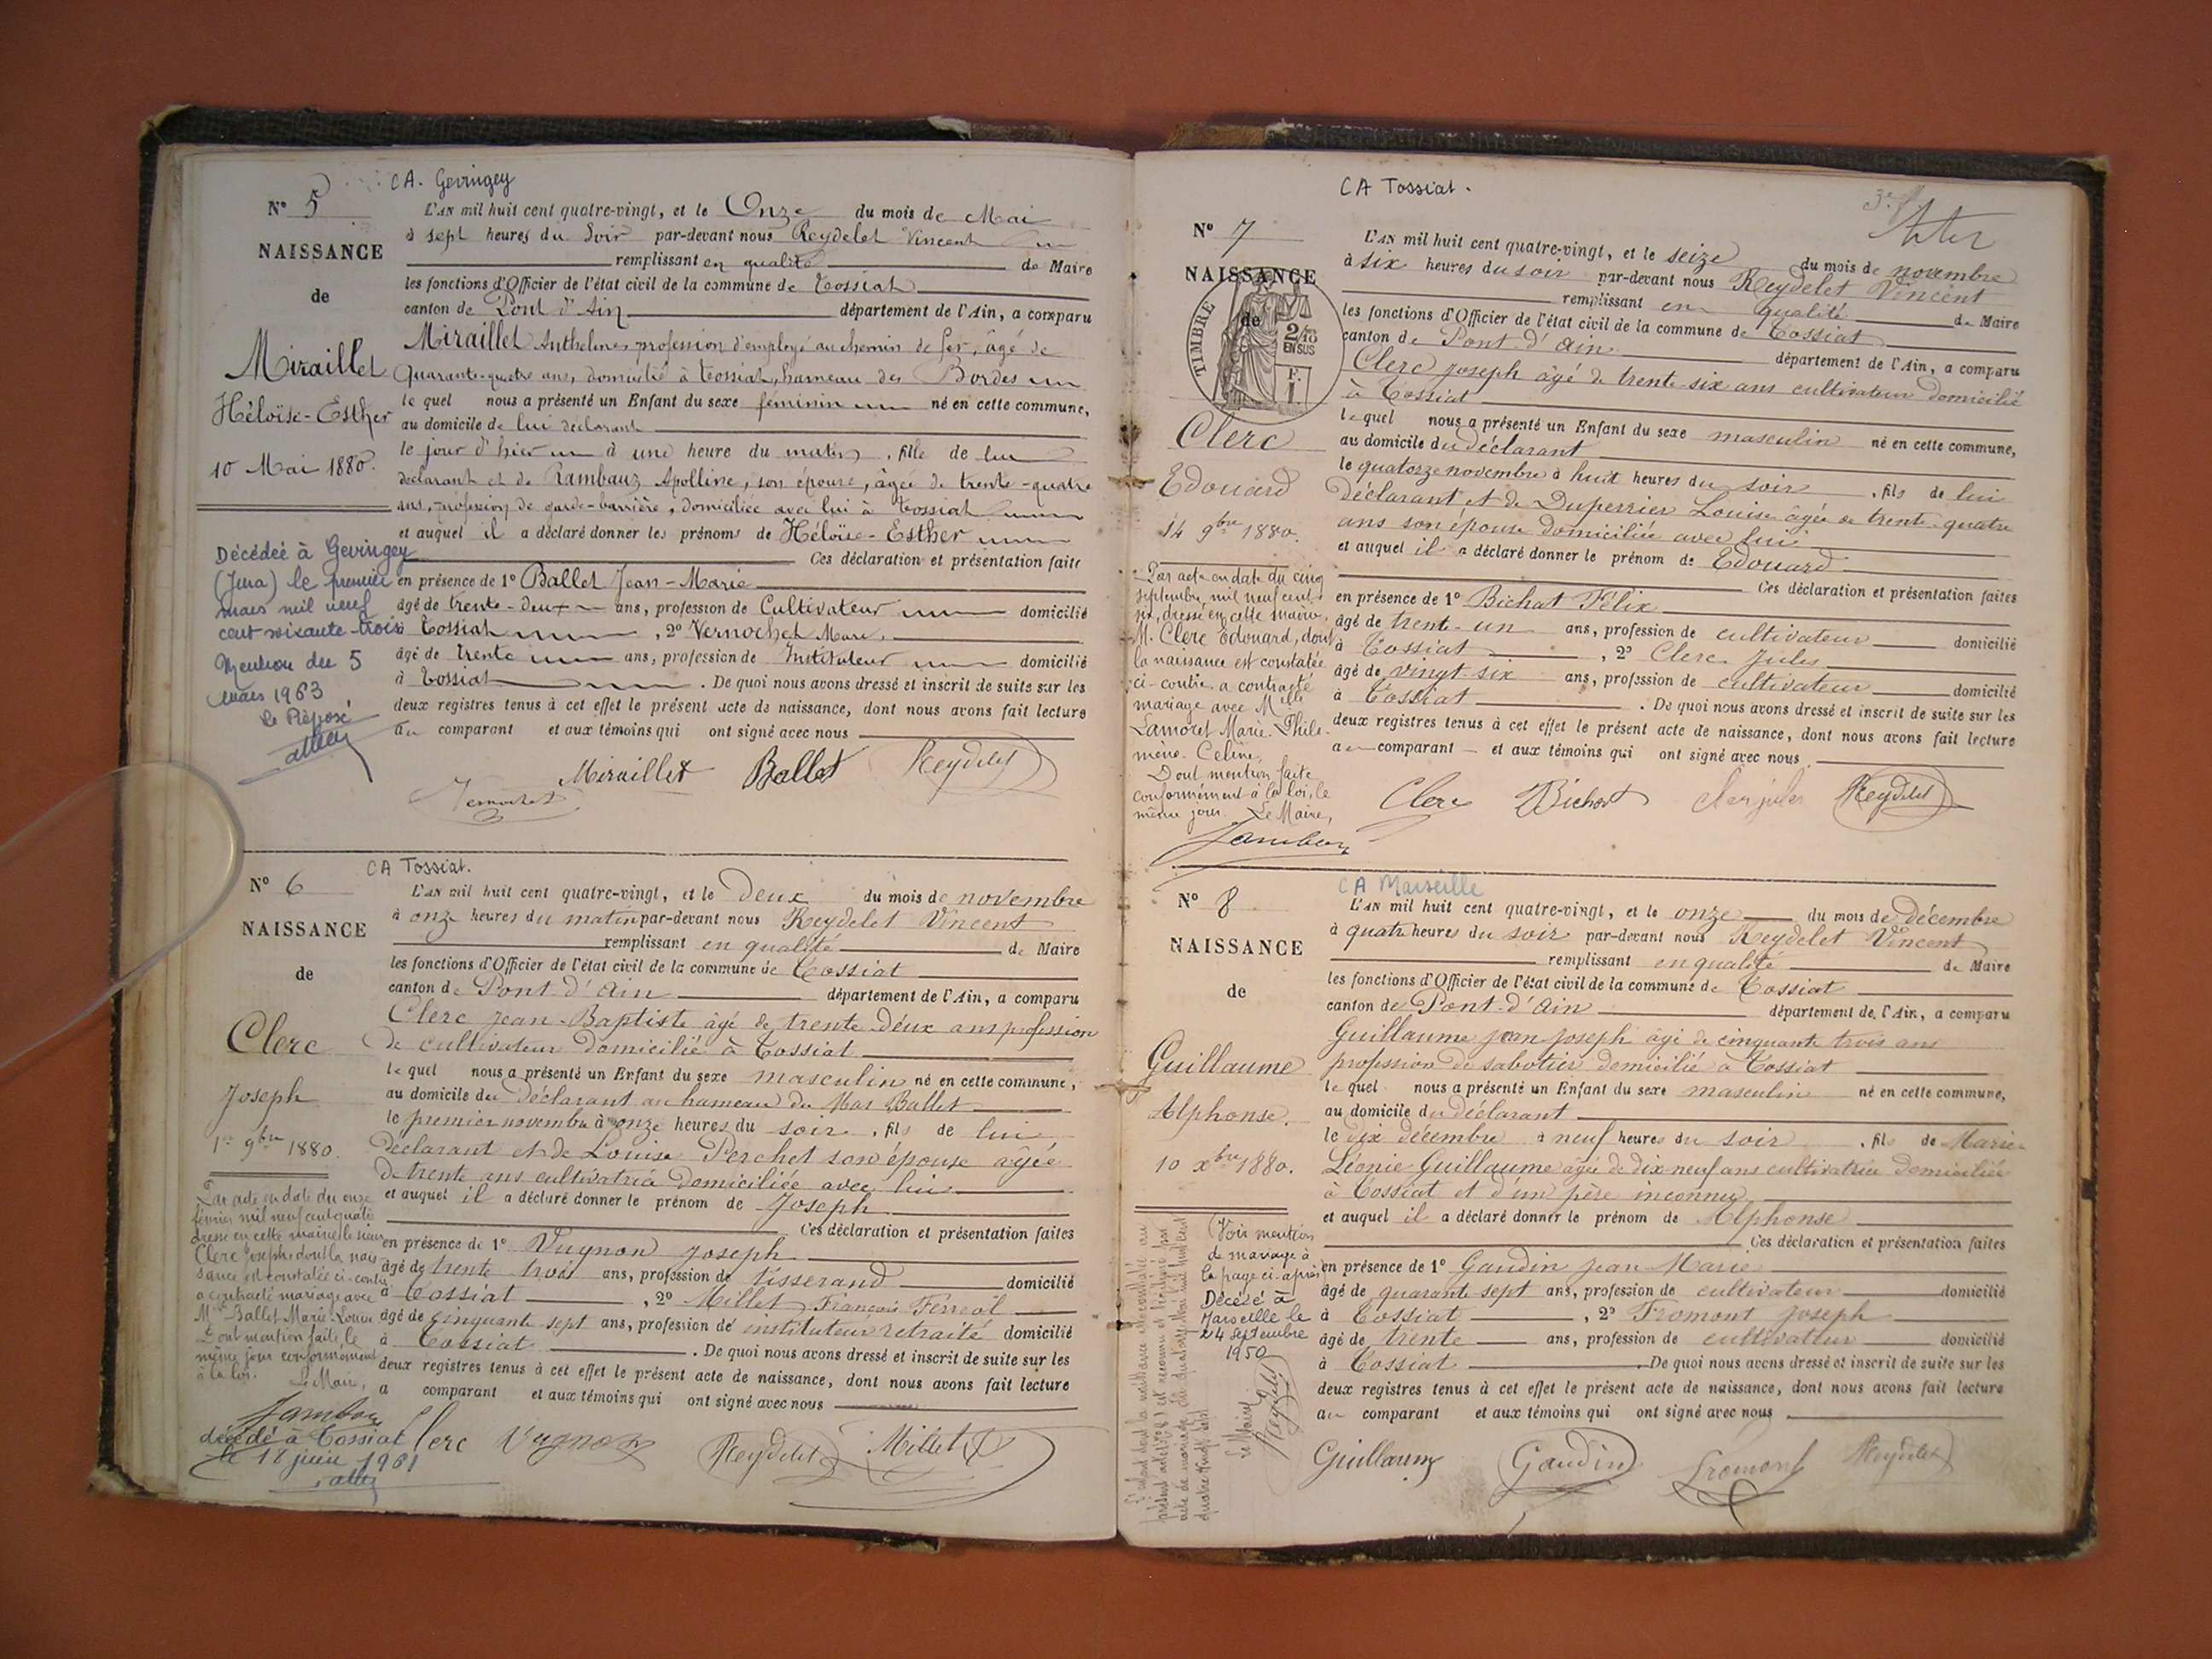 CA. Gevingey
N° 5
L'AN mil huit cent quatre-vingt, et le Onze du mois de Mai
à sept heures du Soir par-devant nous Reydelet Vincent
NAISSANCE
remplissant en qualité de Maire
les fonctions d'Officier de l'état civil de la commune de Tossiat
de
canton de Pont d'Ain département de l'Ain, a comparu
Miraillet Anthelme, profession d'employé au chemin de fer, âgé de
Miraillet
quarante-quatre ans, domicilié à Tossiat, hameau des Bordes
le quel nous a présenté un Enfant du sexe féminin né en cette commune,
Héloïse-Esther
au domicile de lui déclarant
le jour d'hier à une heure du matin, fille de lui
10 Mai 1880.
déclarant et de Rambauz Apolline, son épouse, âgée de trente-quatre
ans, profession de garde-barrière, domiciliée avec lui à Tossiat
et auquel il a déclaré donner les prénoms de Héloïse-Esther
Ces déclaration et présentation faite
en présence de 1° Ballet Jean-Marie
âgé de trente-deux ans, profession de Cultivateur domicilié
à Tossiat, 2° Vernochet Marc,
âgé de trente ans, profession de Instituteur domicilié
à Tossiat. De quoi nous avons dressé et inscrit de suite sur les
deux registres tenus à cet effet le présent acte de naissance, dont nous avons fait lecture
au comparant et aux témoins qui ont signé avec nous
Décédée à Gevingey
(Jura) le premier
mars mil neuf
cent soixante-trois
Mention du 5
mars 1963
Le Préposé
Vernochet Miraillet Ballet Reydelet
CA Tossiat.
N° 6
L'AN mil huit cent quatre-vingt, et le Deux du mois de novembre
à onze heures du matin par-devant nous Reydelet Vincent
NAISSANCE
remplissant en qualité de Maire
les fonctions d'Officier de l'état civil de la commune de Tossiat
de
canton de Pont-d'Ain département de l'Ain, a comparu
Clerc Jean-Baptiste âgé de trente-deux ans profession
Clerc
de cultivateur domicilié à Tossiat
le quel nous a présenté un Enfant du sexe masculin né en cette commune,
Joseph
au domicile du déclarant au hameau du Mas Ballet
le premier novembre à onze heures du soir, fils de lui
1er 9bre 1880.
déclarant et de Louise Perchet son épouse âgée
de trente ans cultivatrice domiciliée avec lui
et auquel il a déclaré donner le prénom de Joseph
Ces déclaration et présentation faites
en présence de 1° Vugnon Joseph
âgé de trente trois ans, profession de tisserand domicilié
à Tossiat, 2° Millet François Ferréol
âgé de cinquante sept ans, profession de instituteur retraité domicilié
à Tossiat. De quoi nous avons dressé et inscrit de suite sur les
deux registres tenus à cet effet le présent acte de naissance, dont nous avons fait lecture
a comparant et aux témoins qui ont signé avec nous
Par acte en date du onze
février mil neuf cent quatre
dressé en cette mairie le sieur
Clerc Joseph dont la nais-
sance est constatée ci-contre
a contracté mariage avec
Mlle Ballet Marie-Louise
Dont mention faite le
même jour conformément
à la loi. Le Maire,
Jambon
décédé à Tossiat
le 18 juin 1961
Clerc Vugnon Reydelet Millet
CA Tossiat.
N° 7
L'AN mil huit cent quatre-vingt, et le seize du mois de novembre
à six heures du soir par-devant nous Reydelet Vincent
NAISSANCE
remplissant en qualité de Maire
les fonctions d'Officier de l'état civil de la commune de Tossiat
de
TIMBRE
2/10
EN SUS
F.
1
canton de Pont d'Ain département de l'Ain, a comparu
Clerc Joseph âgé de trente-six ans cultivateur domicilié
à Tossiat
le quel nous a présenté un Enfant du sexe masculin né en cette commune,
Clerc
au domicile du déclarant
le quatorze novembre à huit heures du soir, fils de lui
Edouard
déclarant et de Duperrier Louise âgée de trente-quatre
14 9bre 1880.
ans son épouse domiciliée avec lui
et auquel il a déclaré donner le prénom de Edouard
Ces déclaration et présentation faites
en présence de 1° Bichat Félix
âgé de trente-un ans, profession de cultivateur domicilié
à Tossiat, 2° Clerc Jules
âgé de vingt-six ans, profession de cultivateur domicilié
à Tossiat. De quoi nous avons dressé et inscrit de suite sur les
deux registres tenus à cet effet le présent acte de naissance, dont nous avons fait lecture
au comparant et aux témoins qui ont signé avec nous
Par acte en date du cinq
septembre mil neuf cent
six, dressé en cette mairie,
M. Clerc Edouard, dont
la naissance est constatée
ci-contre a contracté
mariage avec Mlle
Lamoret Marie-Philo-
mène-Céline.
Dont mention faite
conformément à la loi, le
même jour. Le Maire,
Jambon
Clerc Bichat Clerc jules Reydelet
CA Marseille
N° 8
L'AN mil huit cent quatre-vingt, et le onze du mois de décembre
à quatre heures du soir par-devant nous Reydelet Vincent
NAISSANCE
remplissant en qualité de Maire
les fonctions d'Officier de l'état civil de la commune de Tossiat
de
canton de Pont-d'Ain département de l'Ain, a comparu
Guillaume Jean Joseph âgé de cinquante trois ans
Guillaume
profession de sabotier domicilié à Tossiat
le quel nous a présenté un Enfant du sexe masculin né en cette commune,
Alphonse.
au domicile du déclarant
le dix décembre à neuf heures du soir, fils de Marie-
10 xbre 1880.
Léonie Guillaume âgée de dix-neuf ans cultivatrice domiciliée
à Tossiat et d'un père inconnu
et auquel il a déclaré donner le prénom de Alphonse
Ces déclaration et présentation faites
en présence de 1° Gaudin Jean-Marie
âgé de quarante-sept ans, profession de cultivateur domicilié
à Tossiat, 2° Fromont Joseph
âgé de trente ans, profession de cultivateur domicilié
à Tossiat. De quoi nous avons dressé et inscrit de suite sur les
deux registres tenus à cet effet le présent acte de naissance, dont nous avons fait lecture
au comparant et aux témoins qui ont signé avec nous
(Voir mention
de mariage à
la page ci-après
Décédé à
Marseille le
24 septembre
1950
L'enfant dont la naissance est constatée au
présent acte (n° 8) est reconnu et légitimé par
acte de mariage du quatorze Mai mil huit cent
quatre vingt sept
Le Maire
Reydelet
Guillaume Gaudin Fromont Reydelet